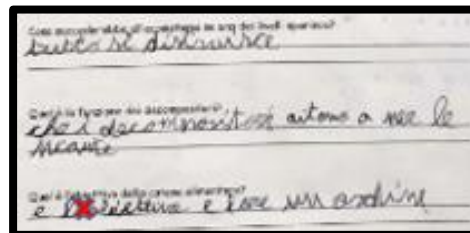 Cosa succederebbe all'ecosistema se uno dei livelli sparisse?
tutto si distrusce
Qual è la funzione dei decompositori?
che i decompositori aitono a per le
Qual è l'obiettivo della catena alimentare?
è l'obiettivo è fare un